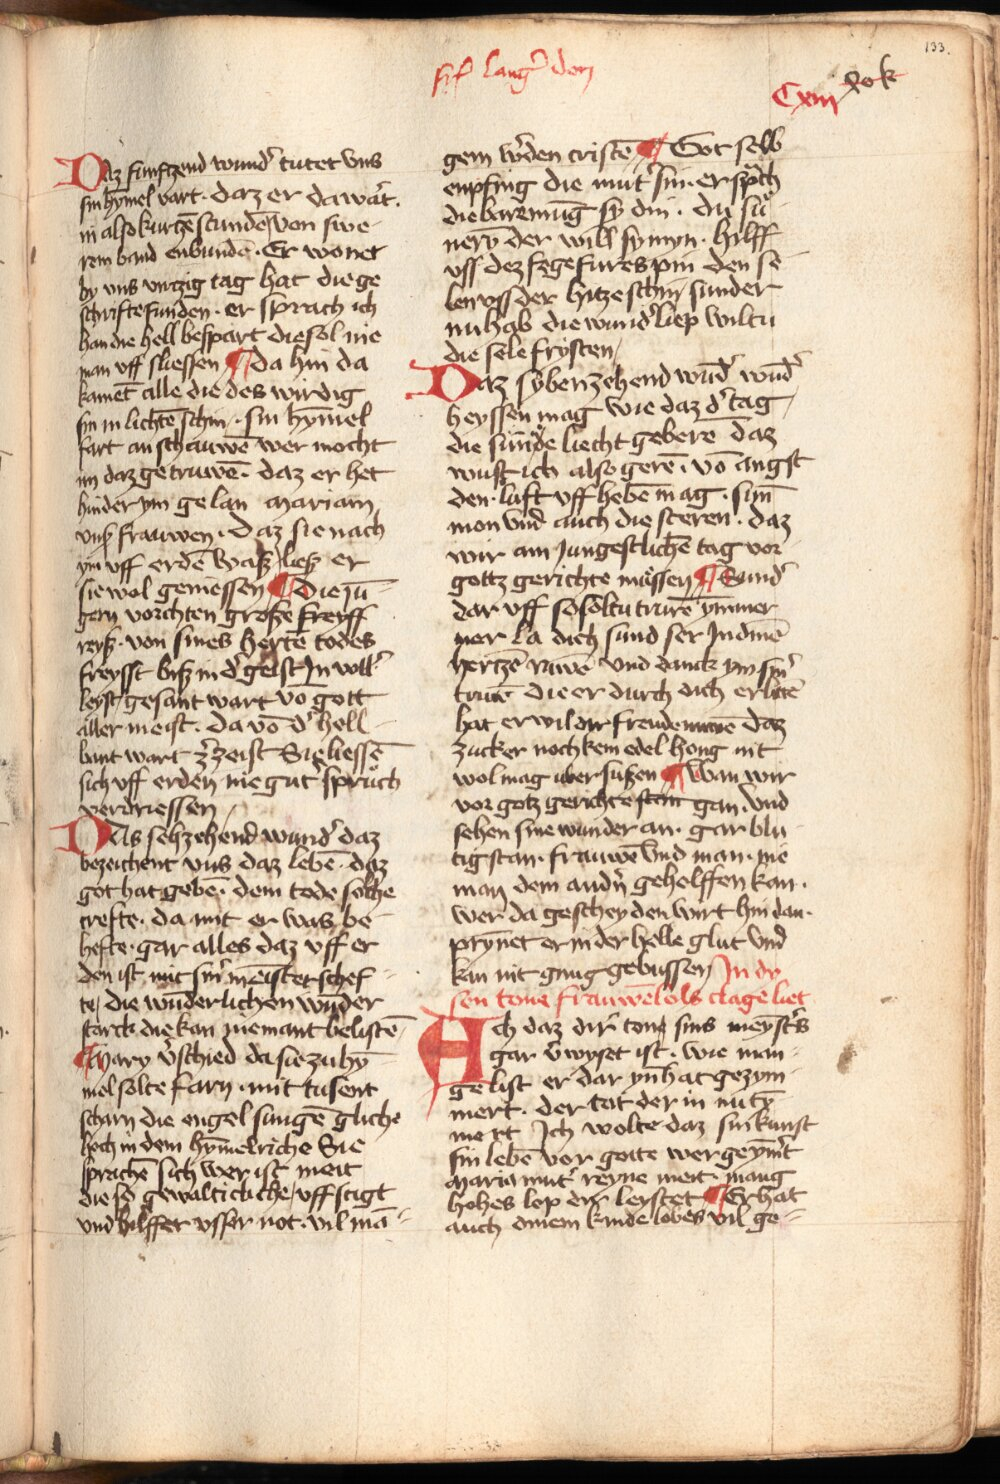 133.
sin langer don
Cxiij
Daz funftzend wund' tutet vns
sin hymel vart. daz er da wat'.
in also kurtzē stundē von swe-
rem band enbundē. Er wonet
by vns virtzig tag hat die ge
schrifte funden. er sprach ich
han die hell bespart die sol nie
man vff sliessen ¶ da hin da
kamēt alle die des wirdig
sin in lichtē schin. sin hymel
fart an schauwē wer mocht
im daz getruwē. daz er het
hinder ym gelan mariam
vnß frauwen. daz sie nach
ym vff erdē waß ließ er
sie wol geniessen ¶ Die iū-
gern vorchten große freyff
reyß. von sines hertē todes
freysst biß in d' geist In voll'
leyst gesant wart vō gott
aller meist. da vō d' hell-
bant wart z'zeist Sie liessē
sich vff erden nie gut spruch
verdriessen
Das sehzehend wund' daz
bezeichent vns daz lebē. daz
got hat gebē. dem tode solche
crefte. da mit er was be-
hefte. gar alles daz vff er
den ist mit sin' meisterschef-
te die wūderlichen wūder
starck die kan niemant belistē
¶ Mary v'schied da sie zu hȳ-
mel solte farn. mit tusent
scharn die engel sungē gliche
hoch in dem hȳmelriche Sie
sprachē sich wer ist meit
die so gewalticliche vff stigt
vnd hilffet vsser not. vil mā-
gem w'den cristē ¶ Got selb
enpfing die mut' sin. er sprach
die barmung sy din. du sü-
nerȳ der will sy myn. hilff
vss dez fegefures pin den se
len vss der hitze schin sunder
nu hab die wund' liep wiltu
die sele fristen
Daz sybenzehend wūd' wūd'
heyssen mag wie daz d' tag
die sūnde liecht geberē daz
wust ich also gerē. vō angst
den luft vff hebē mag. sūn
mon vnd auch die steren. daz
wir am Jungestlichē tag vor
gottz gerichte müssen ¶ Sund'
dar vff so soltu trurē ymmer
mer la dich sund ser In dinē
hertzē ruwē vnd danck ym sin'
truwē die er durch dich erlitē
hat er wil dir freude nuwē daz
zucker noch kem edel hong nit
wol mag uber sußen ¶ Wan wir
vor gotz gerichte stan gan. vnd
sehen sine wunder an. gar blu
tig stan. frauwē vnd man. nie
man dem and'n gehelffen kan.
wer da gescheyden wirt hin dan.
prynet er in der helle glut vnd
kan nit gnug gebussen In dy
sen tone frauwēlobs clage liet
Ach daz dir' tone sins meyst's
gar v'wyset ist. wie man-
ge list er dar yn hat gezym-
mert. der tot der in nu tȳ
mert Ich wolte daz sin kunst
sin lebē vor gotte wer gezym't
Maria mut' reyne meit. mang
hohes lop dir leystet ¶ Er hat
auch dinem kinde lobes vil ge-